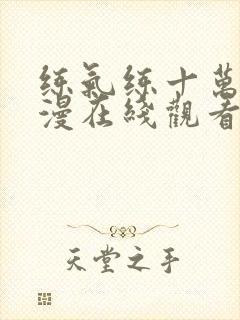 练氣练十萬
漫在綫觀看
天堂之手